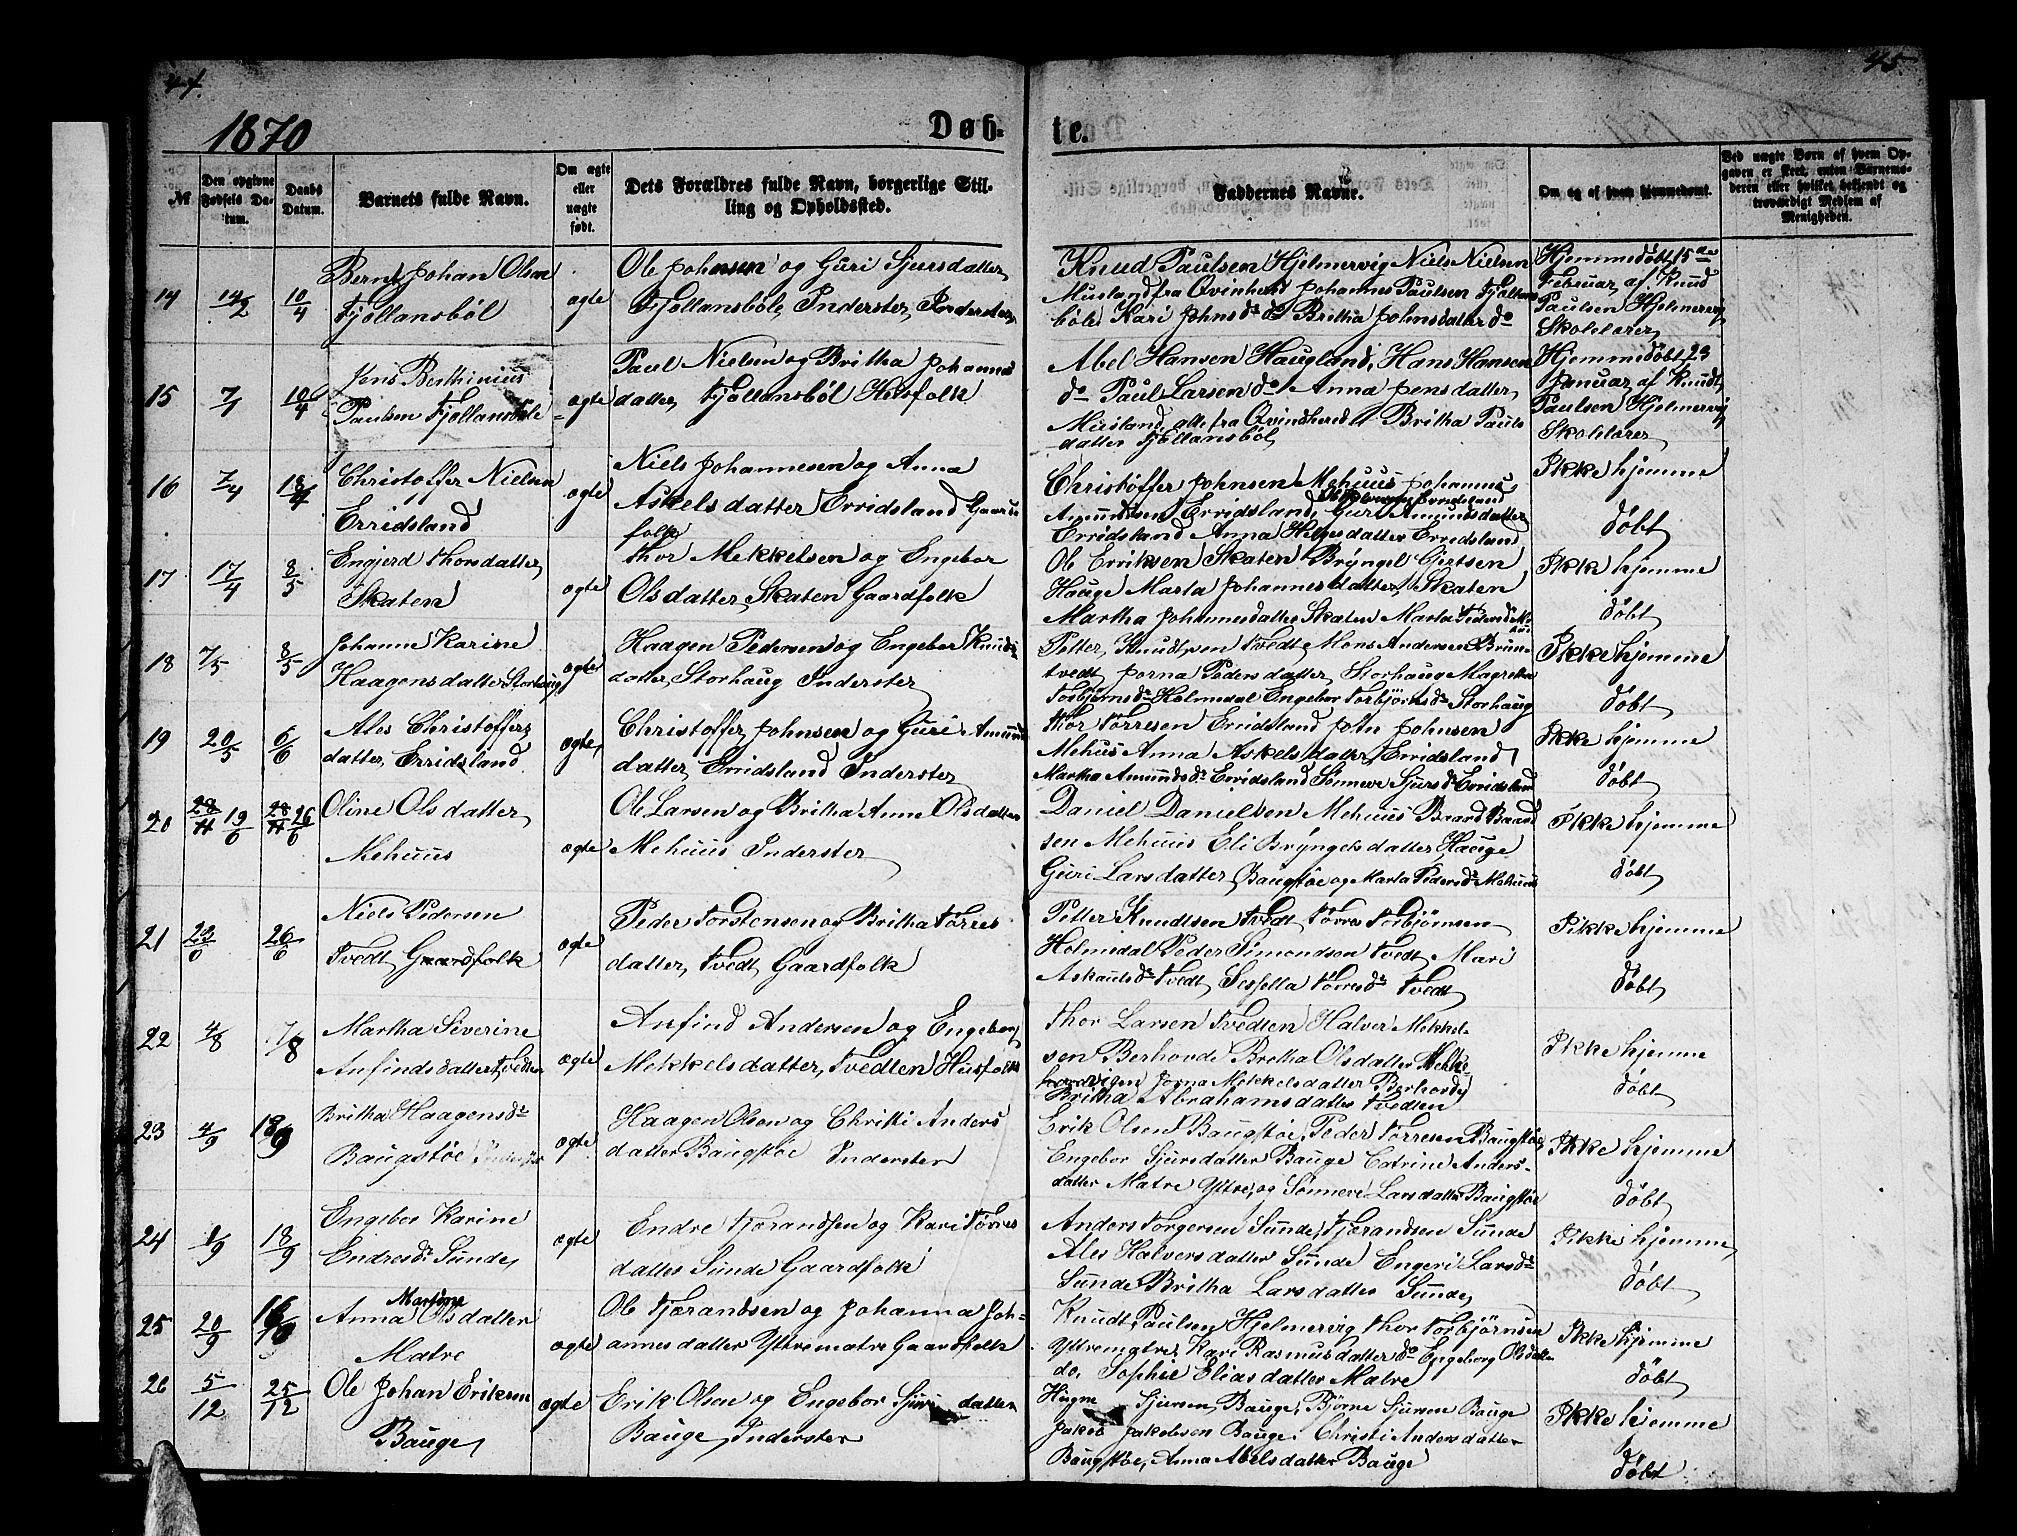 44.
45
1870
Døb-
te.
№
Den opgivne
Fødsels Da-
tum.
Daabs
Datum.
Barnets fulde Navn.
Om ægte
eller
uægte
født.
Dets Forældres fulde Navn, borgerlige Stil-
ling og Opholdssted.
Faddernes Navne.
Om og af hvem hjemmedømt.
Ved uægte Børn af hvem Op-
gaven er skeet, enten Barnemo-
deren eller hvilket bekjendt og
troværdigt Medlem af
Menigheden.
14
14/2
10/4
Bernt Johan Olsen
Fjællansbøl
ægte
Ole Johnsen og Guri Sjursdatter
Fjøllansbøle Inderster, Inderster
Knud Paulsen Hjelmervig Niels Nielsen
Musland fra Qvinherd Johannes Paulsen Fjøllans
bøle Kari Johnsdr do Britha Johnsdatter do
Hjemmedøbt 15de
Februar, af Knud
Paulsen Hjelmervig
Skolelærer
15
7/1
10/4
Jens Berthinius
Paulsen Fjøllansbøle
ægte
Paul Nielsen og Britha Johannes
datter, Fjøllansbøl Husfolk
Abel Hansen Haugland, Hans Hansen
do Paul Larsen do Anna Jensdatter,
Musland, alle fra Qvindherred Britha Pauls
datter Fjøllansbøl
Hjemmedøbt 23
Januar, af Knudt
Paulsen Hjelmervig
Skolelærer
16
7/4
18/4
Christoffer Nielsen
Erridsland
ægte
Niels Johannesen og Anna
Askelsdatter Erridsland Gaards
folk
Christoffer Johnsen Mehuus Johannes
Amundsen Erridsland, Guri Amundsdatter
Erridsland Anna Helgesdatter Erridsland
Ikke hjemme
døbt
17
17/4
8/5
Engjerd Thorsdatter
Skaten
ægte
Thor Mekkelsen og Engebor
Olsdatter, Skaten Gaardfolk
Ole Erriksen Skaten Brÿngel Gjertsen
Hauge Marta Johannesdatter, Skaten
Martha Johannesdatter Skaten Marta Pedersdr
Ikke hjemme
døbt
18
7/5
8/5
Johanne Karine
Haagensdatter Storhaug
ægte
Haagen Pedersen og Engebor Knuds
datter, Storhaug Inderster
Petter Knudtsen Tvedt, Mons Andersen Brun-
tvedt Jorna Pedersdatter, Storhaug Magretha
Torbjørnsdr Holmedal Engebor Torbjørnsdr Storhaug
Ikke hjemme
døbt
19
20/5
6/6
Ales Christoffers
datter, Erridsland
ægte
Christoffer Johnsen og Guri Amunds
datter, Erridsland Inderster
Thor Tørresen Erridsland John Johnsen
Mehus Anna Askelsdatter, Erridsland
Martha Amundsdr Erridsland Sønneve Sjursdr Erridsland
Ikke hjemme
døbt
20
19/6
26/6
Oline Olsdatter
Mehuus
ægte
Ole Larsen og Britha Anne Olsdatter
Mehuus Inderster
Daniel Danielsen Mehuus Baard Baard
sen Mehuus Eli Brÿngelsdatter, Hauge
Guri Larsdatter, Baugstøe og Marta Pedersdr Mehuus
Ikke hjemme
døbt
21
23/6
26/6
Niels Pedersen
Tvedt Gaardfolk
ægte
Peder Torstensen og Britha Tørres
datter, Tvedt Gaardfolk
Petter Knudtsen Tvedt Tørres Torbjørnsen
Holmedal Peder Simondsen Tvedt Mari
Askautsdr Tvedt, Sessella Tørresdr Tvedt
Ikke hjemme
døbt
22
4/8
7/8
Martha Severine
Anfindsdatter Tvedten
ægte
Anfind Andersen og Engebor
Mekkelsdatter, Tvedten Husfolk
Thor Larsen Tvedten Halver Mekkel-
sen Berhovde Britha Olsdatter
Jorna Mekkelsdatter Berhovde
Britha Abrahamsdatter Tvedten
Ikke hjemme
døbt
23
4/9
18/9
Britha Haagensdr
Baugstøe
ægte
Haagen Olsen og Christi Anders
datter Baugstøe Inderster
Erik Olsen Baugstøe, Peder Tørresen Baugstøe
Engebor Sjursdatter Bauge Catrine Anders-
datter Matre Yttre, og Sønneve Larsdatter Baugstøe
Ikke hjemme
døbt
24
1/9
18/9
Engebor Karine
Endresdr Sunde
ægte
Endre Tjørandsen og Kari Tørres
datter Sunde Gaardfolk
Anders Torgersen Sunde, Tjørandsen Sunde
Ales Halversdatter Sunde Engeri Larsdr
Sunde, Britha Larsdatter Sunde
Ikke hjemme
døbt
25
20/9
16/10
Anna Martine Olsdatter
Matre
ægte
Ole Tjørandsen og Johanna Joh-
annesdatter Yttrematre Gaardfolk
Knudt Paulsen Hjelmervig Thor Torbjørnsen
Yttrematre, Kari Rasmusdatter do Engeborg Olsdatter
do, Sophie Eliasdatter Matre
Ikke hjemme
døbt
26
5/12
25/12
Ole Johan Eriksen
Bauge
ægte
Erik Olsen og Engebor Sjursdatter
Bauge Inderster
Sjursen, Bauge, Børne Sjursen Bauge
Jakob Jakobsen Bauge. Christi Andersdatter
Baugstøe, Anna Abelsdatter Bauge
Ikke hjemme
døbt